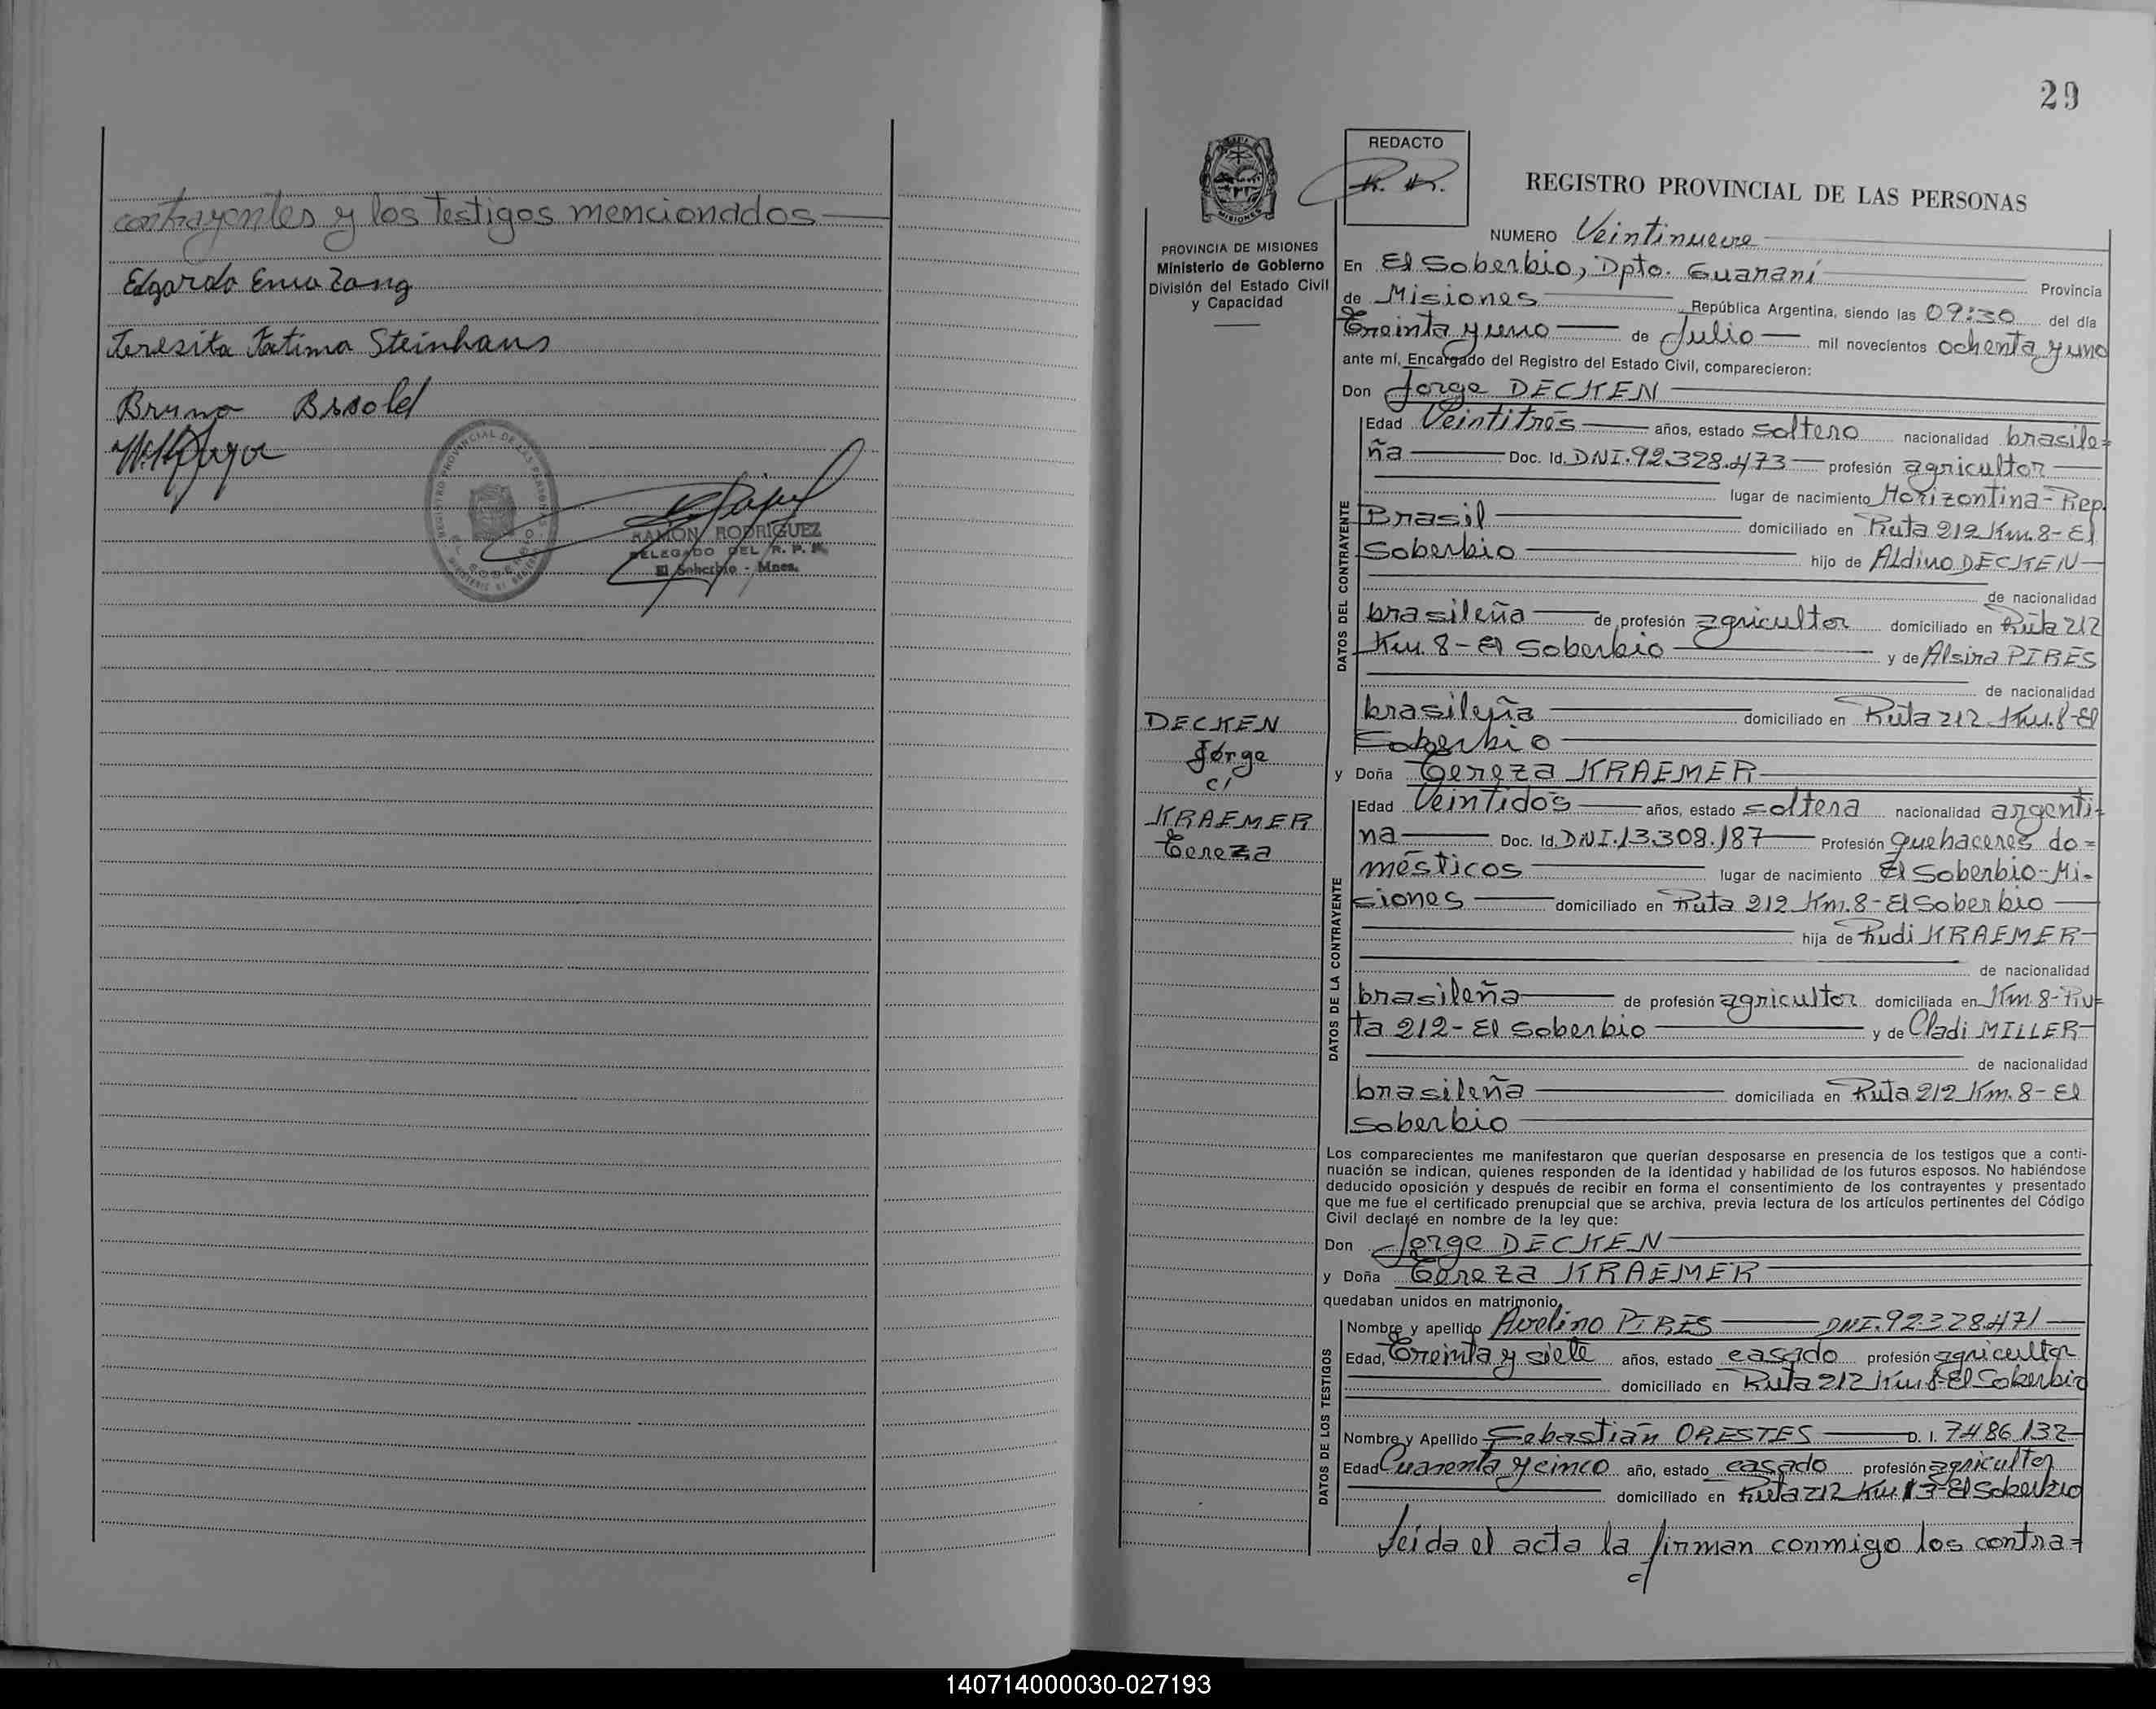 contrayentes y los testigos mencionados
Edgardo Enio Zang
Teresita Fatima Steinhaus
Bruno
REGISTRO PROVINCIAL DE LAS PERSONAS
EL SOBERBIO
RAMON RODRIGUEZ
DELEGADO DEL R. P. P.
El Soberbio - Mnes.
29
MISIONES
PROVINCIA DE MISIONES
Ministerio de Gobierno
División del Estado Civil
y Capacidad
DECKEN
Jorge
c/
KRAEMER
Tereza
REDACTO
R. R.
REGISTRO PROVINCIAL DE LAS PERSONAS
NUMERO Veintinueve
En El Soberbio, Dpto. Guaraní Provincia
de Misiones República Argentina, siendo las 09:30 del día
Treinta y uno de Julio mil novecientos ochenta y uno
ante mí, Encargado del Registro del Estado Civil, comparecieron:
Don Jorge DECKEN
DATOS DEL CONTRAYENTE
Edad Veintitrés años, estado soltero nacionalidad brasile=
ña Doc. Id. DNI.92.328.473 profesión agricultor
lugar de nacimiento Horizontina-Rep.
Brasil domiciliado en Ruta 212 Km.8-El
Soberbio hijo de Aldino DECKEN
de nacionalidad
brasileña de profesión agricultor domiciliado en Ruta 212
Km. 8-El Soberbio y de Alsira PIRES
de nacionalidad
brasileña domiciliado en Ruta 212 Km.8-El
Soberbio
y Doña Tereza KRAEMER
DATOS DE LA CONTRAYENTE
Edad Veintidós años, estado soltera nacionalidad argenti-
na Doc. Id. DNI.13.308.187 Profesión quehaceres do=
mésticos lugar de nacimiento El Soberbio-Mi-
siones domiciliado en Ruta 212 Km.8-El Soberbio
hija de Rudi KRAEMER
de nacionalidad
brasileña de profesión agricultor domiciliada en Km.8-Ru=
ta 212-El Soberbio y de Cladi MILLER
de nacionalidad
brasileña domiciliada en Ruta 212 Km.8-El
Soberbio
Los comparecientes me manifestaron que querían desposarse en presencia de los testigos que a conti-
nuación se indican, quienes responden de la identidad y habilidad de los futuros esposos. No habiéndose
deducido oposición y después de recibir en forma el consentimiento de los contrayentes y presentado
que me fue el certificado prenupcial que se archiva, previa lectura de los artículos pertinentes del Código
Civil declaré en nombre de la ley que:
Don Jorge DECKEN
y Doña Tereza KRAEMER
quedaban unidos en matrimonio.
DATOS DE LOS TESTIGOS
Nombre y apellido Avelino PIRES DNI.92.328.471
Edad, Treinta y siete años, estado casado profesión agricultor
domiciliado en Ruta 212 Km.8-El Soberbio
Nombre y Apellido Sebastián ORESTES D. I. 7486132
Edad Cuarenta y cinco año, estado casado profesión agricultor
domiciliado en Ruta 212 Km 13-El Soberbio
Leida el acta la firman conmigo los contra=
140714000030-027193